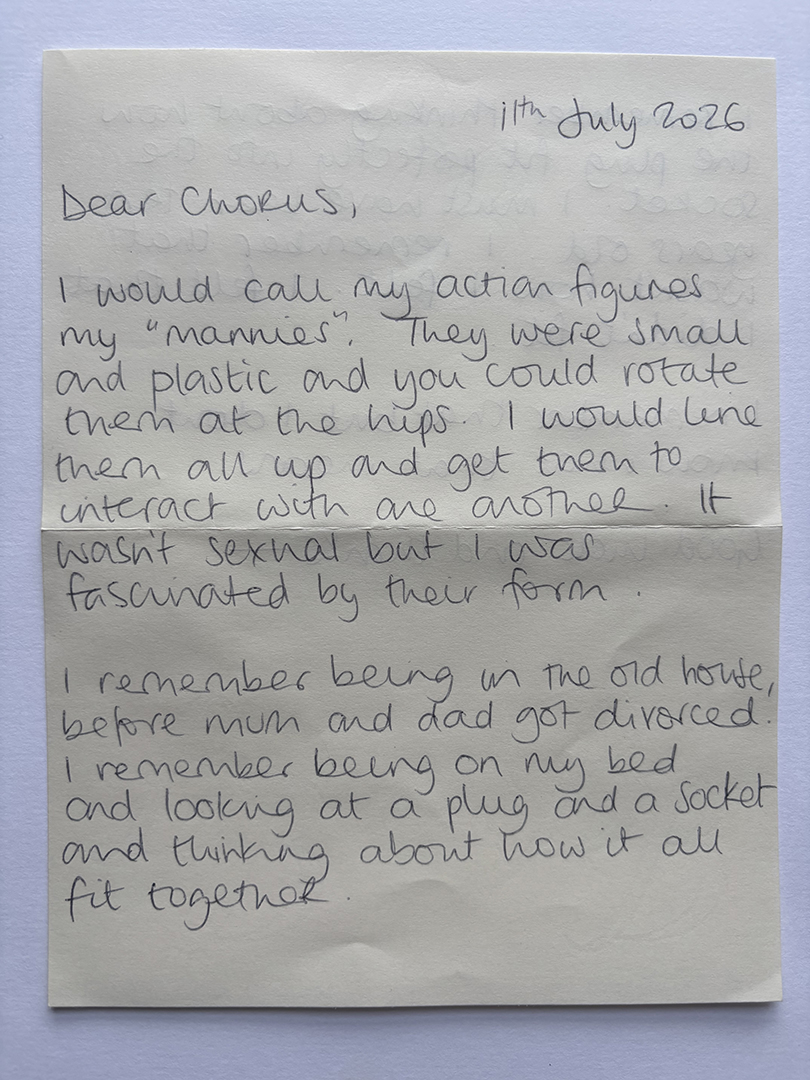 11th July 2026
Dear Chorus,
I would call my action figures
my "mannies". They were small
and plastic and you could rotate
them at the hips. I would line
them all up and get them to
interact with one another. It
wasn't sexual but I was
fascinated by their form.
I remember being in the old house,
before mum and dad got divorced.
I remember being on my bed
and looking at a plug and a socket
and thinking about how it all
fit together.